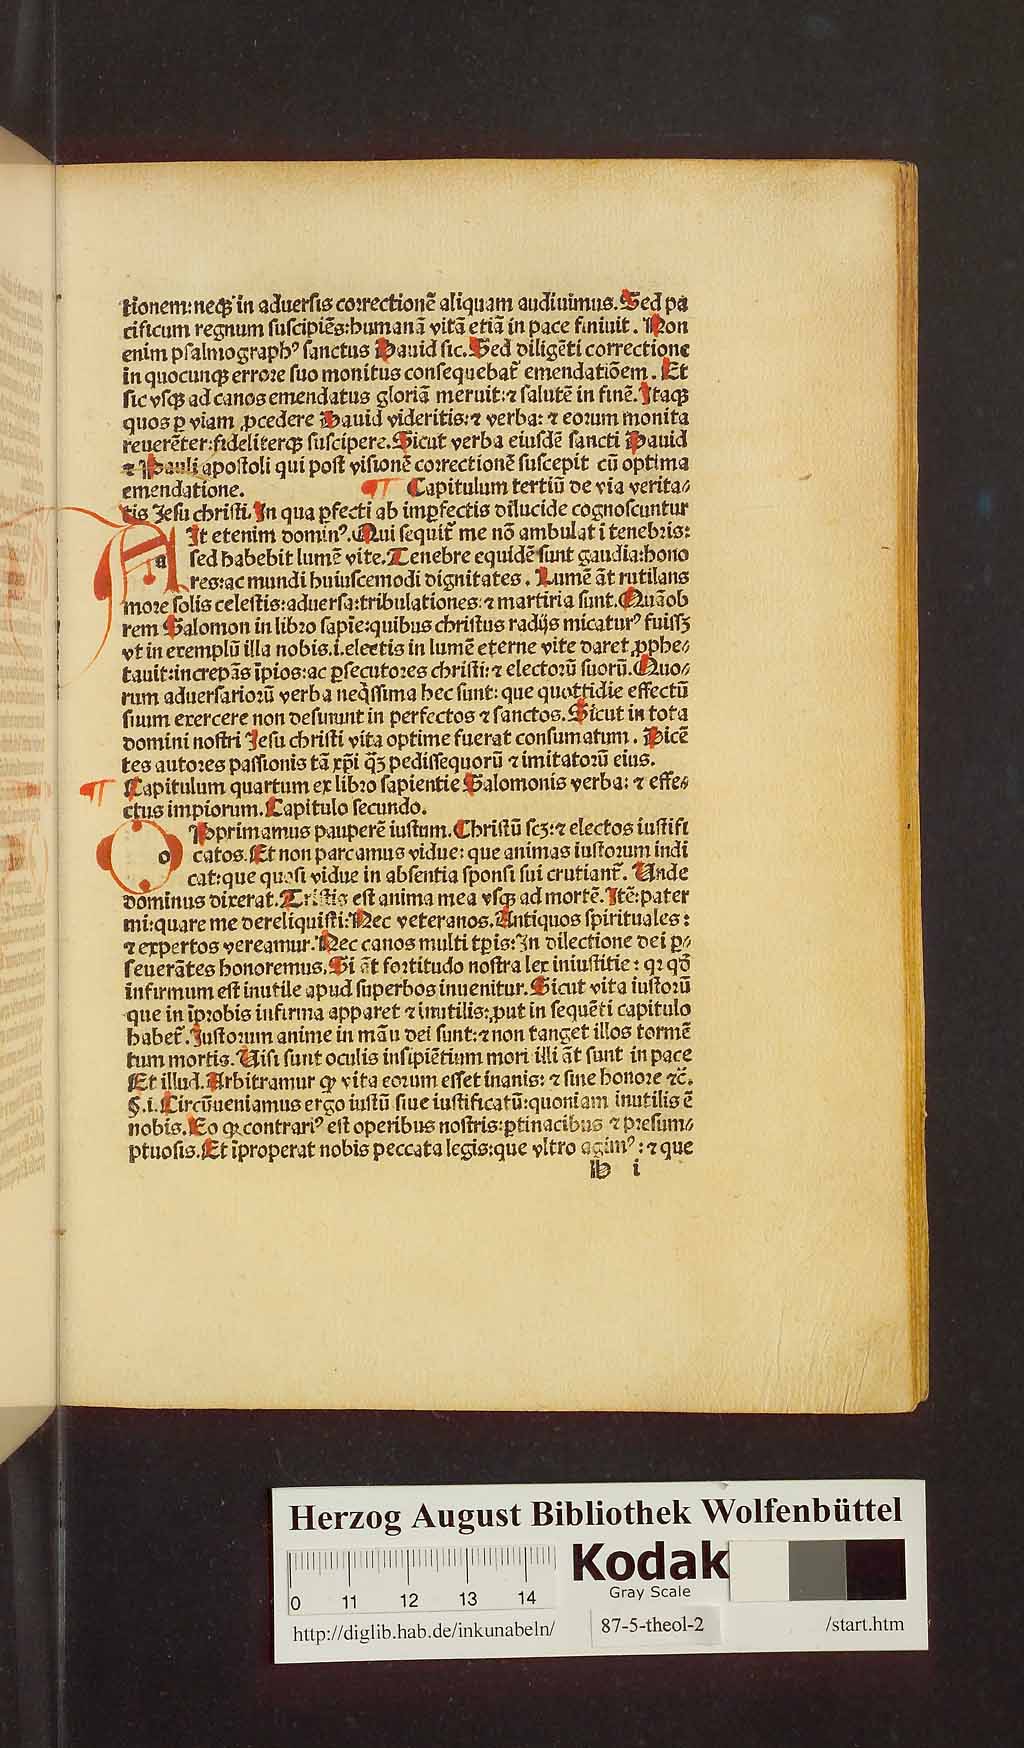 tionem: neqꝫ in aduersis correctionē aliquam audiuimus. Sed pa
cificum regnum suscipiēs: humanā vitā etiā in pace finiuit. Non
enim psalmographꝰ sanctus Dauid sic. Sed diligēti correctione
in quocunqꝫ errore suo monitus consequebat᷑ emendatiōem. Et
sic vsqꝫ ad canos emendatus gloriā meruit: ⁊ salutē in finē. Itaqꝫ
quos ꝑ viam ꝓcedere Dauid videritis: ⁊ verba: ⁊ eorum monita
reuerēter: fideliterqꝫ suscipere. Sicut verba eiusdē sancti Dauid
⁊ Pauli apostoli qui post visionē correctionē suscepit cū optima
emendatione. ¶ Capitulum tertiū de via verita⸗
tis Jesu christi. In qua ꝑfecti ab imꝑfectis dilucide cognoscuntur
a It etenim dominꝰ. Qui sequit᷑ me nō ambulat i tenebris:
sed habebit lumē vite. Tenebre equidē sunt gaudia: hono
res: ac mundi huiuscemodi dignitates. Lumē āt rutilans
more solis celestis: aduersa: tribulationes: ⁊ martiria sunt. Quāob
rem Salomon in libro sapīe: quibus christus radijs micaturꝰ fuissꝫ
vt in exemplū illa nobis .i. electis in lumē eterne vite daret ꝓphe⸗
tauit: increpās īpios: ac ꝑsecutores christi: ⁊ electorū suorū. Quo⸗
rum aduersariorū verba neq̄ssima hec sunt: que quottidie effectū
suum exercere non desinunt in perfectos ⁊ sanctos. Sicut in tota
domini nostri Jesu christi vita optime fuerat consumatum. Dicē
tes autores passionis tā xp̄i qꝫ̄ pedissequorū ⁊ imitatorū eius.
¶ Capitulum quartum ex libro sapientie Salomonis verba: ⁊ effe⸗
ctus impiorum. Capitulo secundo.
o Pprimamus pauperē iustum. Christū scꝫ: ⁊ electos iustifi
catos. Et non parcamus vidue: que animas iustorum indi
cat: que quasi vidue in absentia sponsi sui crutiant᷑. Unde
dominus dixerat. Tristis est anima mea vsqꝫ ad mortē. Itē: pater
mi: quare me dereliquisti: Nec veteranos. Antiquos spirituales:
⁊ expertos vereamur. Nec canos multi tp̄is: In dilectione dei ꝑ⸗
seuerātes honoremus. Si āt fortitudo nostra lex iniustitie: qꝛ qd̄
infirmum est inutile apud superbos inuenitur. Sicut vita iustorū
que in īprobis infirma apparet ⁊ inutilis: ꝓut in sequēti capitulo
habet᷑. Iustorum anime in māu dei sunt: ⁊ non tanget illos tormē
tum mortis. Uisi sunt oculis insipiētium mori illi āt sunt in pace
Et illud. Arbitramur ꝙ vita eorum esset inanis: ⁊ sine honore ⁊c̄.
§.i. Circūueniamus ergo iustū siue iustificatū: quoniam inutilis ē
nobis. Eo ꝙ contrariꝰ est operibus nostris: ꝑtinacibus ⁊ presum⸗
ptuosis. Et īproperat nobis peccata legis: que vltro agimꝰ: ⁊ que
b i
Herzog August Bibliothek Wolfenbüttel
Kodak
Gray Scale
0 11 12 13 14
http://diglib.hab.de/inkunabeln/ 87-5-theol-2 /start.htm